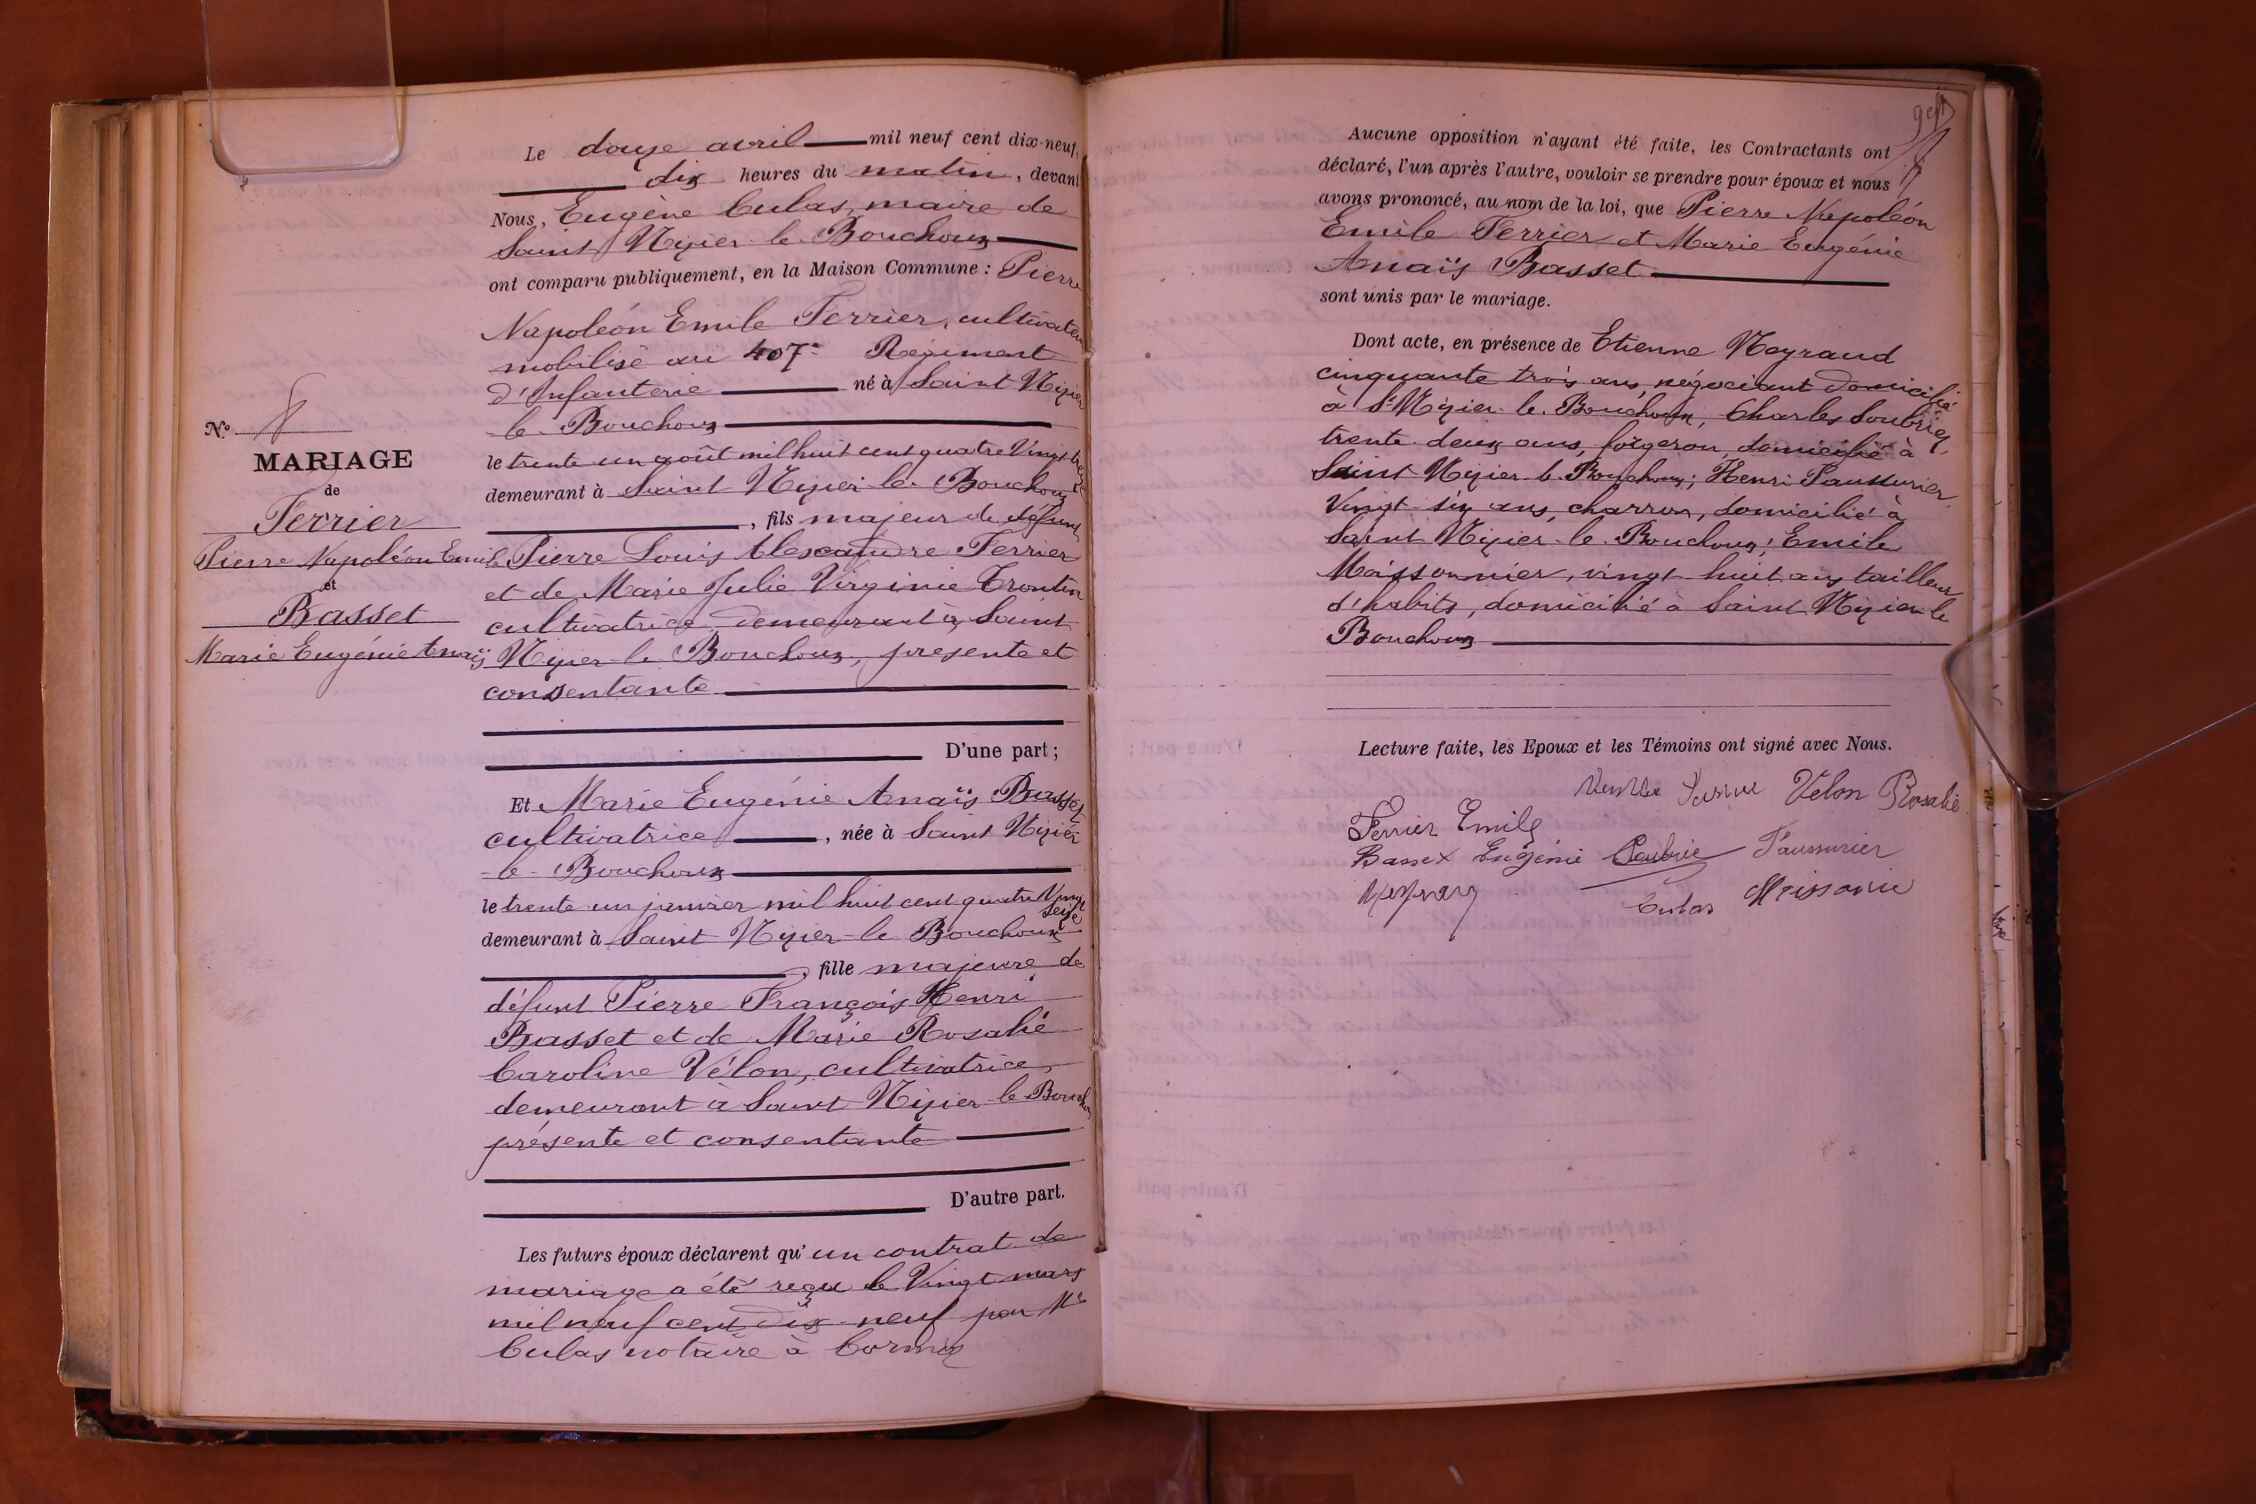 N° 8
MARIAGE
de
Ferrier
Pierre Napoléon Emile
et
Basset
Marie Eugénie Anaïs
Le douze avril mil neuf cent dix-neuf,
dix heures du matin, devant
Nous, Eugène Culas, maire de
Saint Nizier-le-Bouchoux
ont comparu publiquement, en la Maison Commune : Pierre
Napoléon Emile Ferrier, cultivateur
mobilisé au 407e Régiment
d'Infanterie né à Saint Nizier
le-Bouchoux
le trente un août mil huit cent quatre Vingt treize
demeurant à Saint Nizier-le-Bouchoux
, fils majeur de défunt
Pierre Louis Alexandre Ferrier
et de Marie Julie Virginie Trontin
cultivatrice, demeurant à Saint
Nizier-le-Bouchoux, présente et
consentante
D'une part ;
Et Marie Eugénie Anaïs Basset
cultivatrice, née à Saint Nizier
-le-Bouchoux
le trente un janvier mil huit cent quatre Vingt
seize
demeurant à Saint Nizier-le-Bouchoux
, fille majeure de
défunt Pierre François Henri
Basset et de Marie Rosalie
Caroline Vélon, cultivatrice,
demeurant à Saint Nizier-le-Bouchoux
présente et consentante
D'autre part.
Les futurs époux déclarent qu'un contrat de
mariage a été reçu le Vingt mars
mil neuf cent dix-neuf par Me
Culas notaire à Cormoz
Aucune opposition n'ayant été faite, les Contractants ont
déclaré, l'un après l'autre, vouloir se prendre pour époux et nous
avons prononcé, au nom de la loi, que Pierre Napoléon
Emile Ferrier et Marie Eugénie
Anaïs Basset
sont unis par le mariage.
Dont acte, en présence de Etienne Neyraud
cinquante trois ans, négociant domicilié
à St Nizier-le-Bouchoux, Charles Soubrier,
trente-deux ans, forgeron, domicilié à
Saint Nizier-le-Bouchoux; Henri Faussurier,
Vingt-six ans, charron, domicilié à
Saint Nizier-le-Bouchoux; Emile
Moissonnier, vingt-huit ans tailleur
d'habits, domicilié à Saint Nizier le
Bouchoux
Lecture faite, les Epoux et les Témoins ont signé avec Nous.
Velon Rosalie
Ferrier Emile
Basset Eugénie Faussurier
Culas